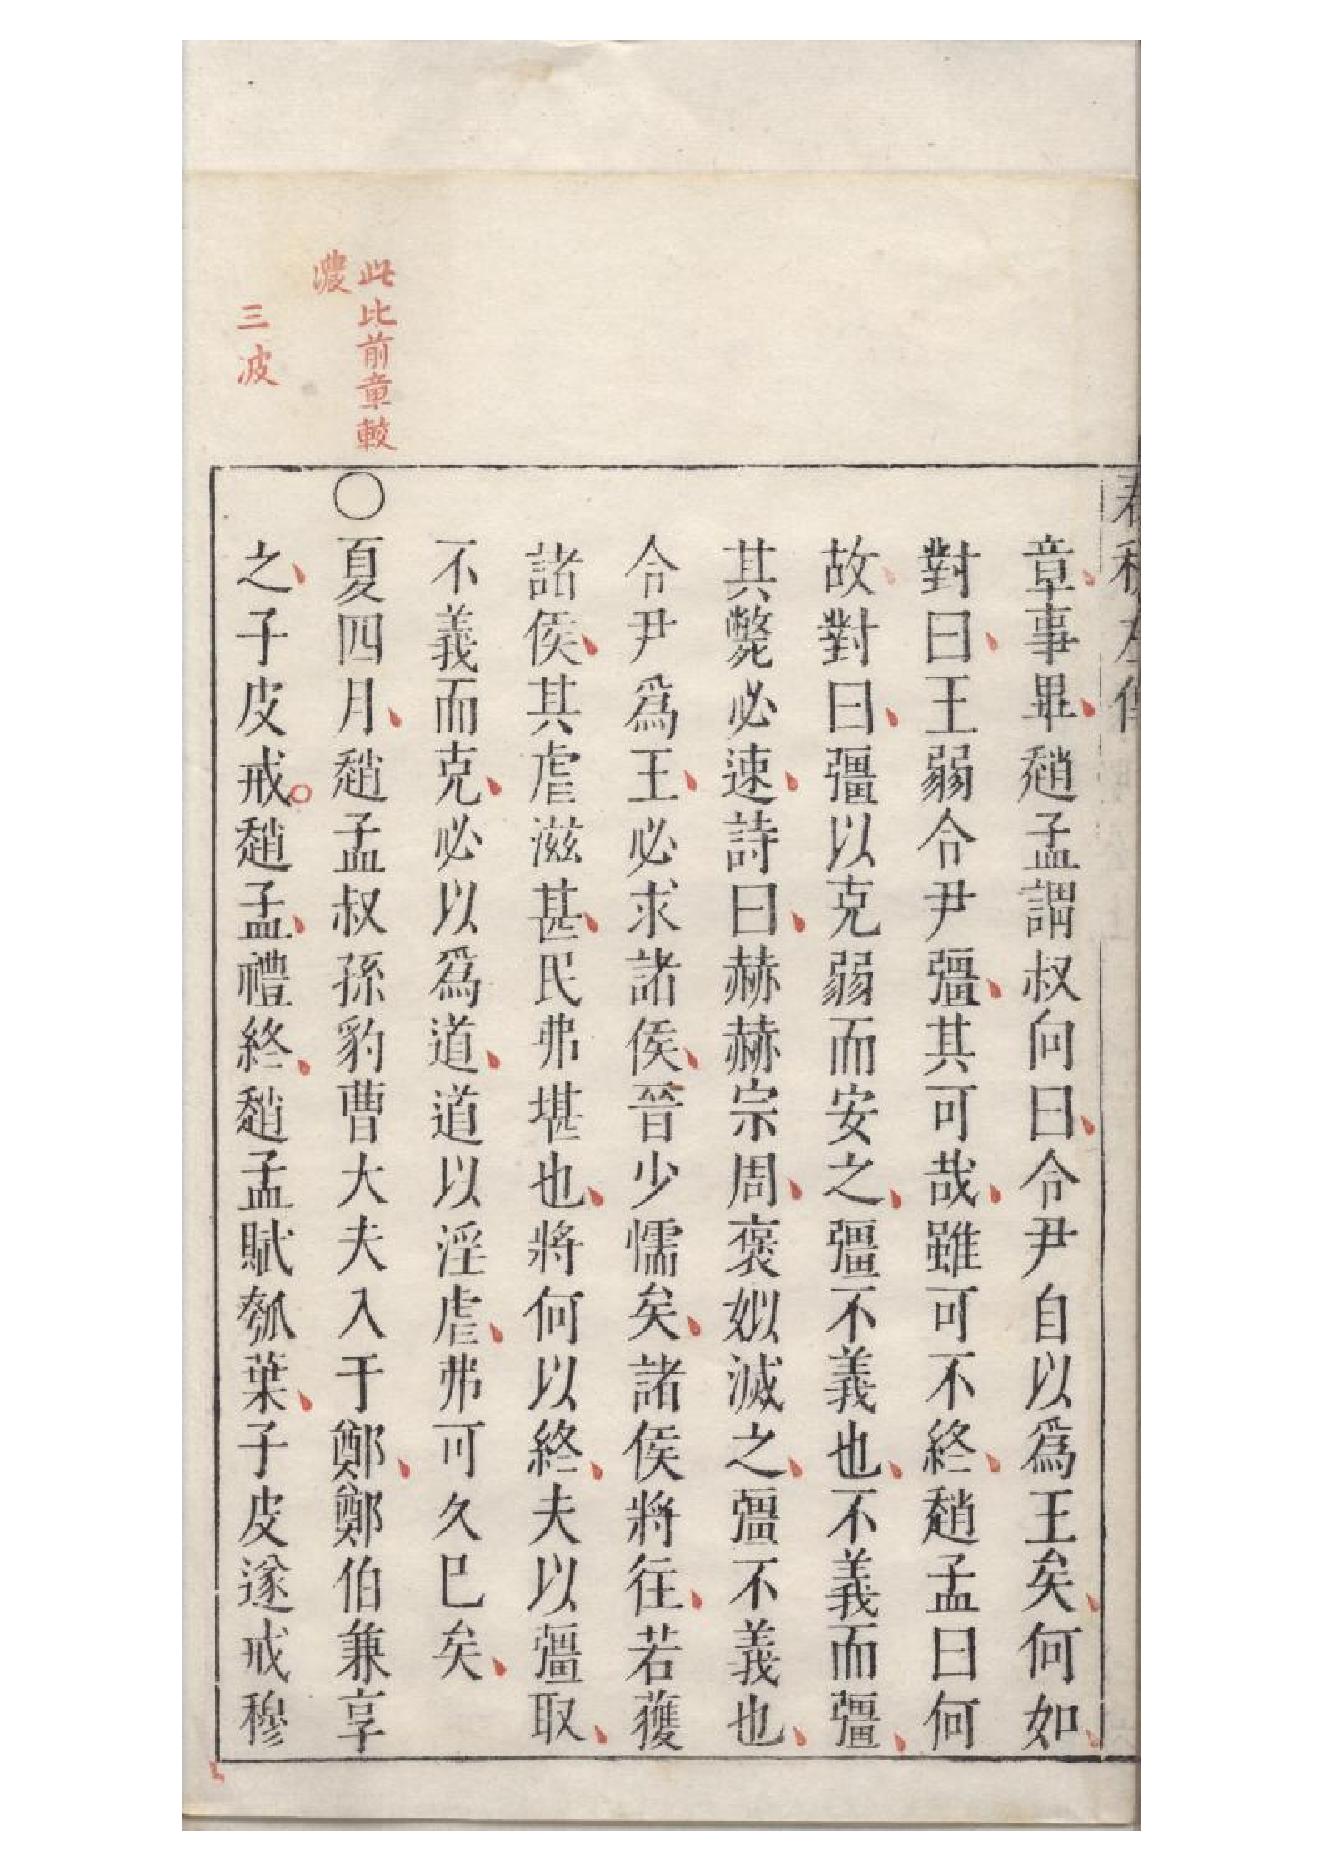 章事畢趙孟謂叔向曰令尹自以爲王矣何如
對曰王弱令尹彊其可哉雖可不終趙孟曰何
故對曰彊以克弱而安之彊不義也不義而彊
其斃必速詩曰赫赫宗周褒姒滅之彊不義也
令尹爲王必求諸侯晉少懦矣諸侯將往若獲
諸侯其虐滋甚民弗堪也將何以終夫以彊取
不義而克必以爲道道以淫虐弗可久巳矣
此比前章較
濃
○夏四月趙孟叔孫豹曹大夫入于鄭鄭伯兼享
三波
之子皮戒趙孟禮終趙孟賦瓠葉子皮遂戒穆